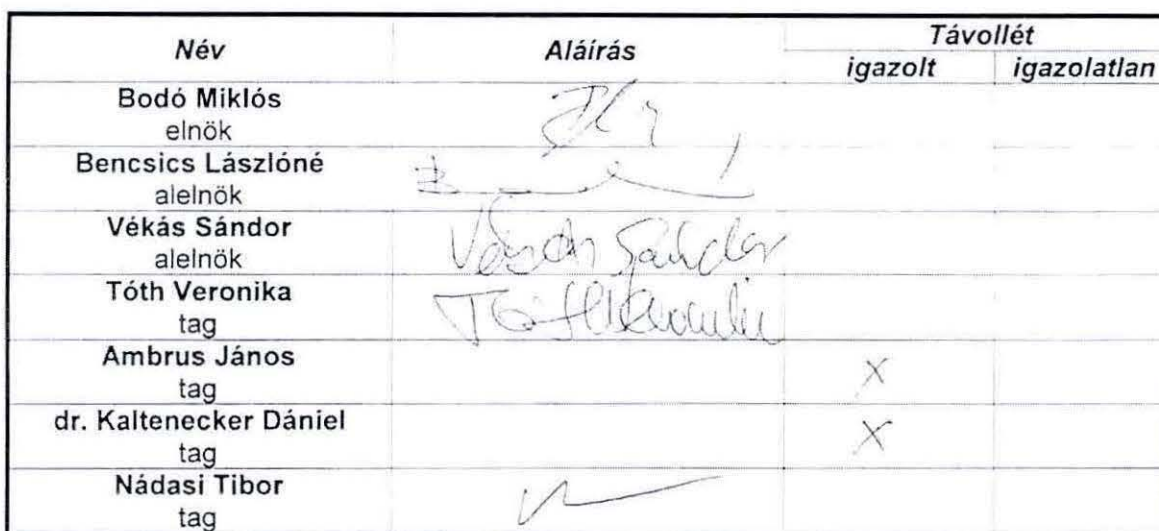 Név Aláírás Távollét
igazolt igazolatlan
Bodó Miklós
elnök
Bencsics Lászlóné
alelnök
Vékás Sándor
alelnök
Vékás Sándor
Tóth Veronika
tag
Tóth Veronika
Ambrus János
tag
X
dr. Kaltenecker Dániel
tag
X
Nádasi Tibor
tag